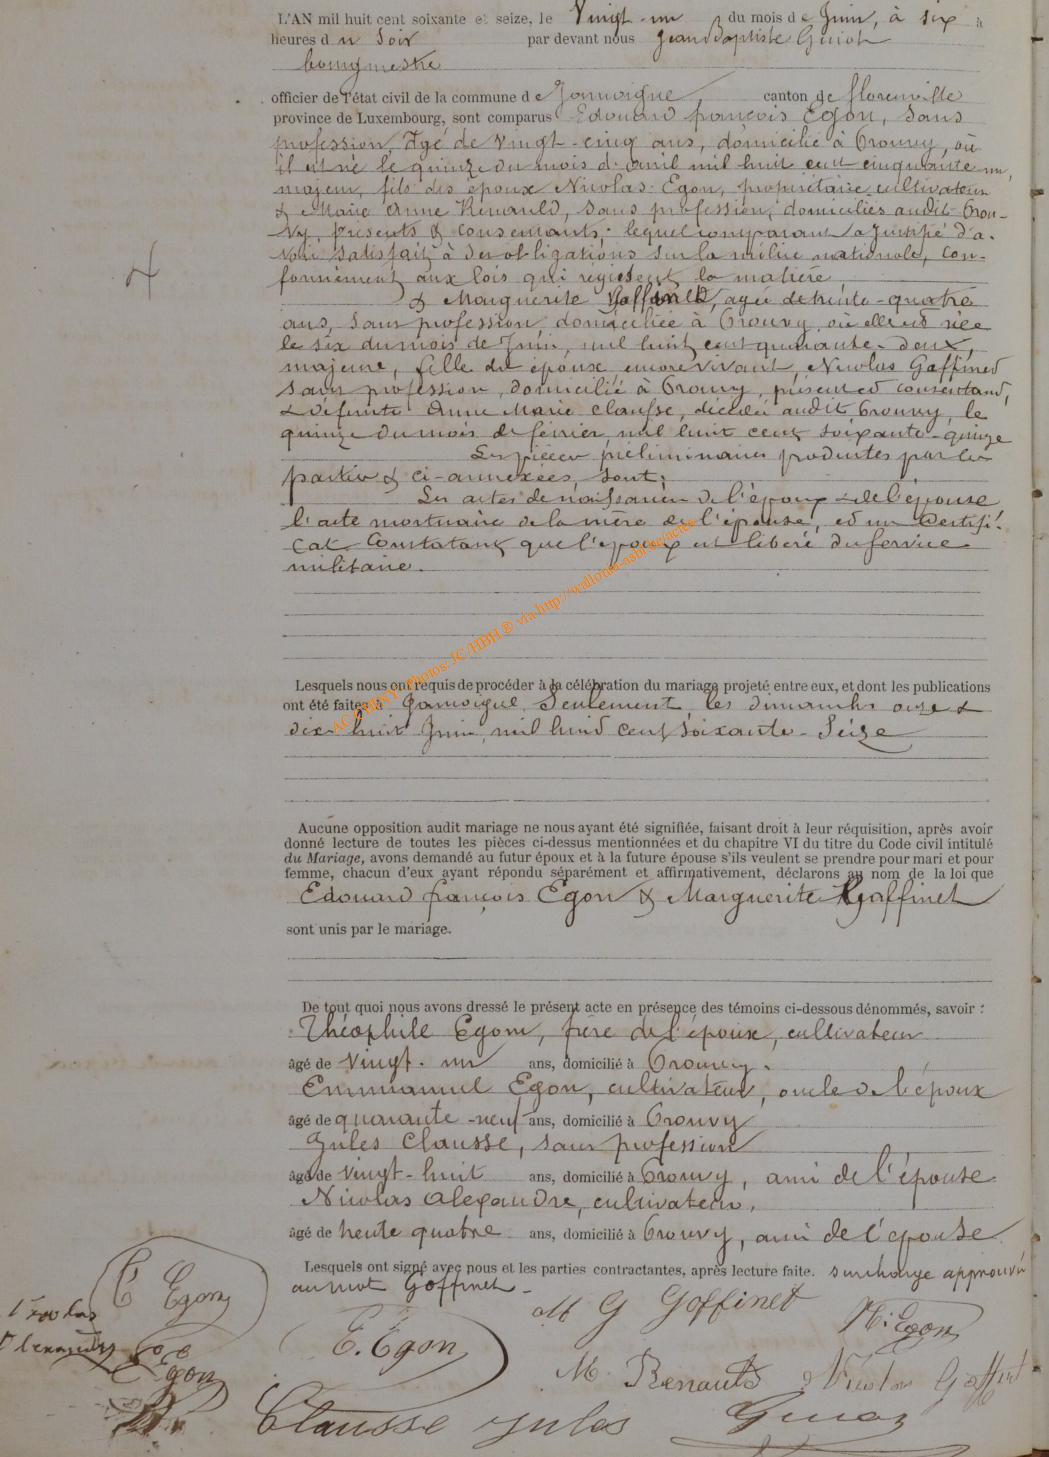 L'AN mil huit cent soixante et seize, le Vingt-un du mois de Juin, à six
heures du soir par devant nous Jean Baptiste Guiot
bourgmestre
officier de l'état civil de la commune de Jamoigne, canton de florenville
province de Luxembourg, sont comparus Edouard françois Egon, Sans
profession, Agé de Vingt-cinq ans, domicilié à Prouvy, où
il est né le quinze du mois d'avril mil huit cent cinquante un,
majeur, fils des époux Nicolas Egon, propriétaire cultivateur
& Marie Anne Renauld, sans profession, domiciliés audit Prou-
vy, présents & consentants; lequel comparant a justifié d'a-
voir satisfait à ses obligations sur la milice nationale, con-
formément aux lois qui régissent la matière
& Marguerite Goffinet, agée de trente-quatre
ans, sans profession, domiciliée à Prouvy, où elle est née
le six du mois de Juin, mil huit cent quarante-deux,
majeure, fille de époux encore vivant Nicolas Goffinet
sans profession, domicilié à Prouvy, présent et consentant,
& défunte Anne Marie Clausse, décédée audit Prouvy, le
quinze du mois de février mil huit cent soixante-quinze
Les pièces préliminaires produites par les
parties & ci-annexées, sont:
Les actes de naissance de l'époux & de l'épouse
l'acte mortuaire de la mère de l'épouse, et un Certifi-
cat Constatant que l'époux est libéré du service
militaire.
ACCDBNY Photos: JC/HBH ® via http://wallonia-asbl.be/actes
Lesquels nous ont requis de procéder à la célébration du mariage projeté entre eux, et dont les publications
ont été faites à Jamoigne Seulement, les dimanches onze &
dix-huit Juin, mil huit cent soixante-Seize
Aucune opposition audit mariage ne nous ayant été signifiée, faisant droit à leur réquisition, après avoir
donné lecture de toutes les pièces ci-dessus mentionnées et du chapitre VI du titre du Code civil intitulé
du Mariage, avons demandé au futur époux et à la future épouse s'ils veulent se prendre pour mari et pour
femme, chacun d'eux ayant répondu séparément et affirmativement, déclarons au nom de la loi que
Edouard françois Egon & Marguerite Goffinet
sont unis par le mariage.
De tout quoi nous avons dressé le présent acte en présence des témoins ci-dessous dénommés, savoir :
Théophile Egon, frère de l'époux, cultivateur
âgé de vingt-un ans, domicilié à Prouvy.
Emmanuel Egon, cultivateur, oncle de l'époux
âgé de quarante-neuf ans, domicilié à Prouvy
Jules Clausse, sans profession
âgé de vingt-huit ans, domicilié à Prouvy, ami de l'épouse
Nicolas Alexandre, cultivateur,
âgé de trente quatre ans, domicilié à Prouvy, ami de l'épouse
Lesquels ont signé avec nous et les parties contractantes, après lecture faite. surcharge approuvée
au mot Goffinet.
Egon
M G Goffinet
N. Egon
E. Egon
Egon
M. Renauld
Nicolas Goffinet
Clausse Jules
Guiot